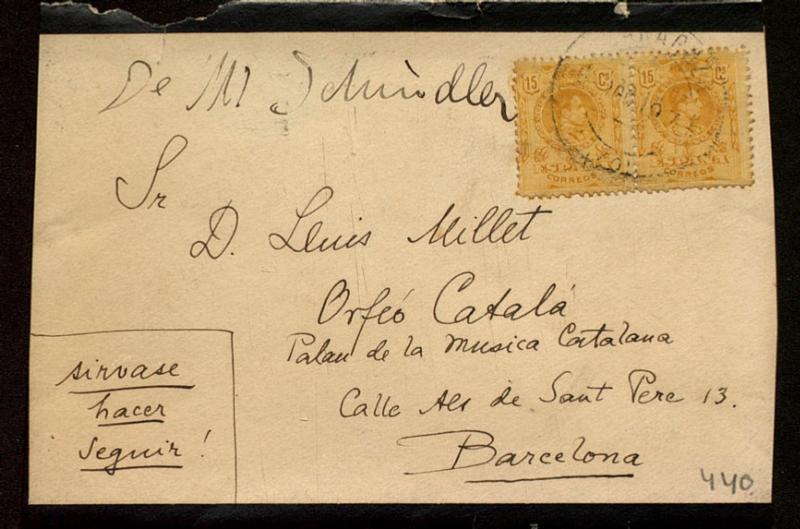 De Mr Schindler
15 Cs 15 Cs
CORREOS CORREOS
Sr
D. Lluis Millet
Orfeó Catalá
Palau de la Musica Catalana
Calle Alt de Sant Pere 13.
Barcelona
sirvase
hacer
seguir!
440